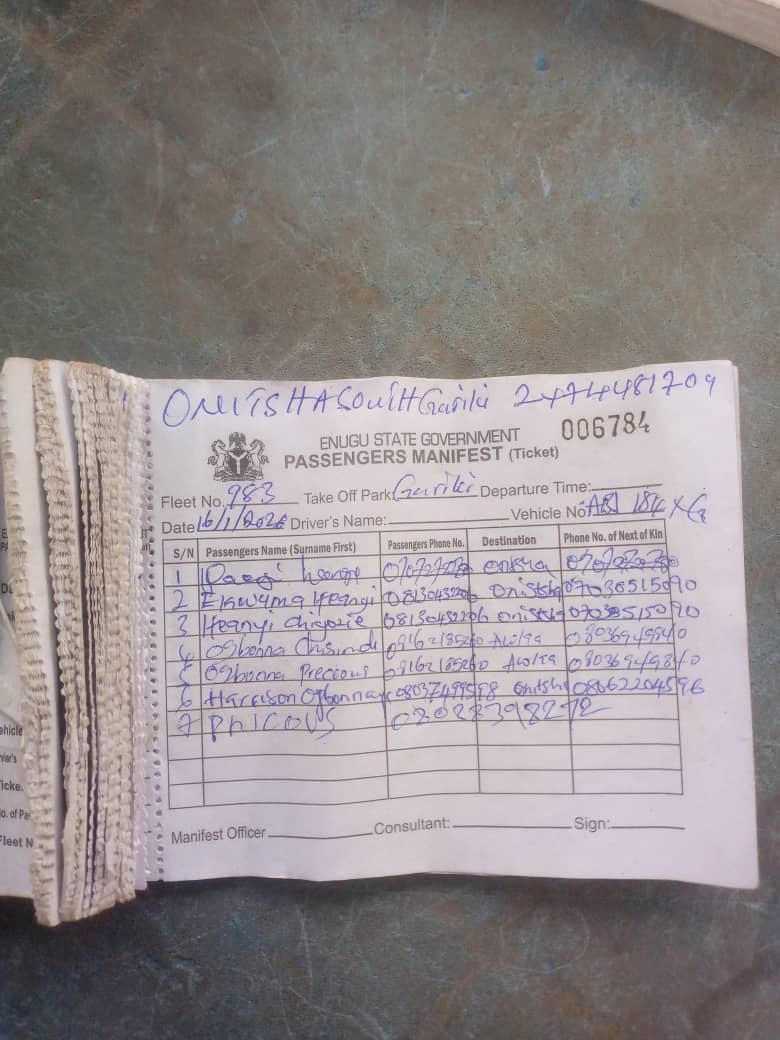 ONITSHA SOUTH Gariki 2474481709
ENUGU STATE GOVERNMENT 006784
PASSENGERS MANIFEST (Ticket)
Fleet No. 983 Take Off Park: Gariki Departure Time:
Date 16/1/2026 Driver's Name: Vehicle No: ABJ 184 XG
S/N Passengers Name (Surname First) Passengers Phone No. Destination Phone No. of Next of Kin
1
2 Ekwuma Ifeanyi 08130432206 Onitsha 07038515090
3 Ifeanyi Chigozie 08130432206 Onitsha 07038515090
4 Ogbonna 09162185260 08036949840
5 Ogbonna Precious 09162185260 08036949840
6 Harrison Ogbonnaya 08037499598 Onitsha 080662204596
7 PHICOUS
Manifest Officer Consultant: Sign: